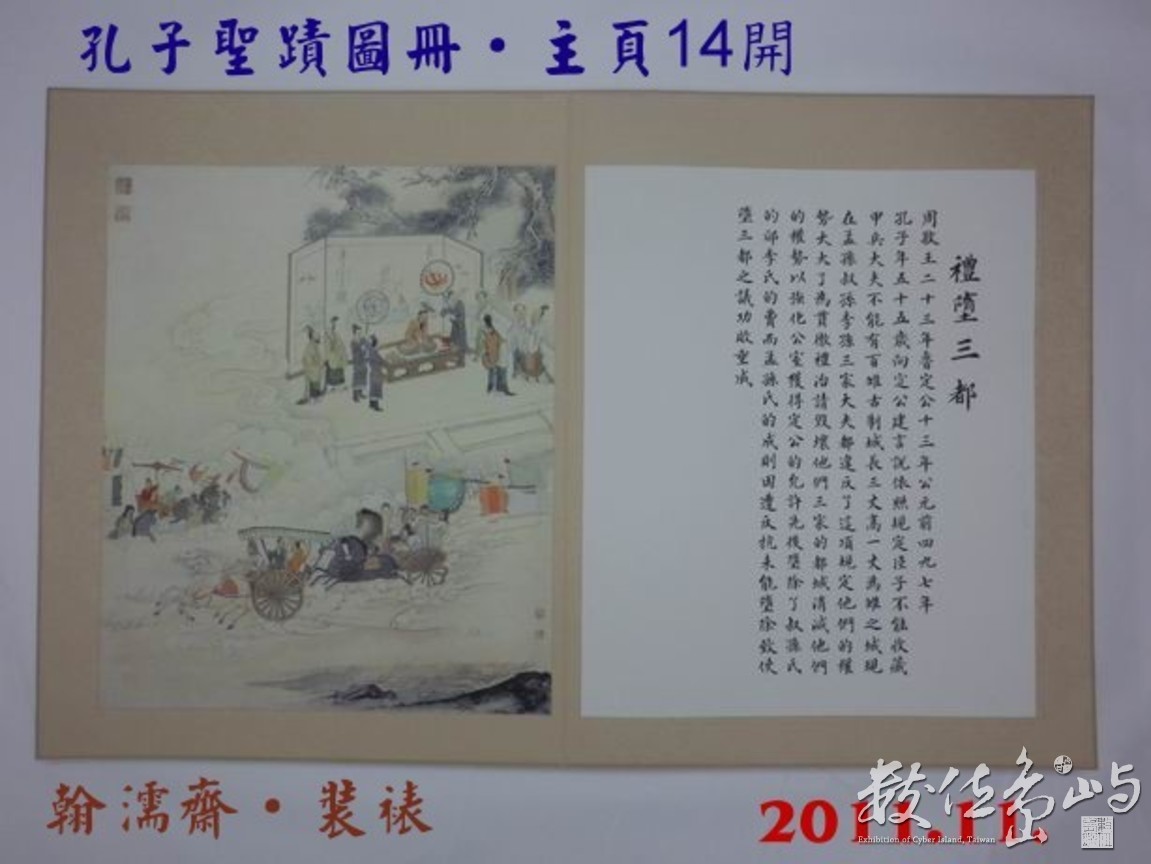 孔子聖蹟圖冊・主頁14開
禮墮三都
周敬王二十三年魯定公十三年公元前四九七年
孔子年五十五歲向定公建言說依照規定臣子不能收藏
甲兵大夫不能有百雉古制城長三丈高一丈為雉之城現
在孟孫叔孫季孫三家大夫都違反了這項規定他們的權
勢太大了為貫徹禮治請毀壞他們三家的都城消減他們
的權勢以強化公室獲得定公的允許先後墮除了叔孫氏
的郈季氏的費而孟孫氏的成則因遭反抗未能墮除致使
墮三都之議功敗垂成
翰濡齋・裝裱
2011.11.
數位島嶼
Exhibition of Cyber Island, Taiwan